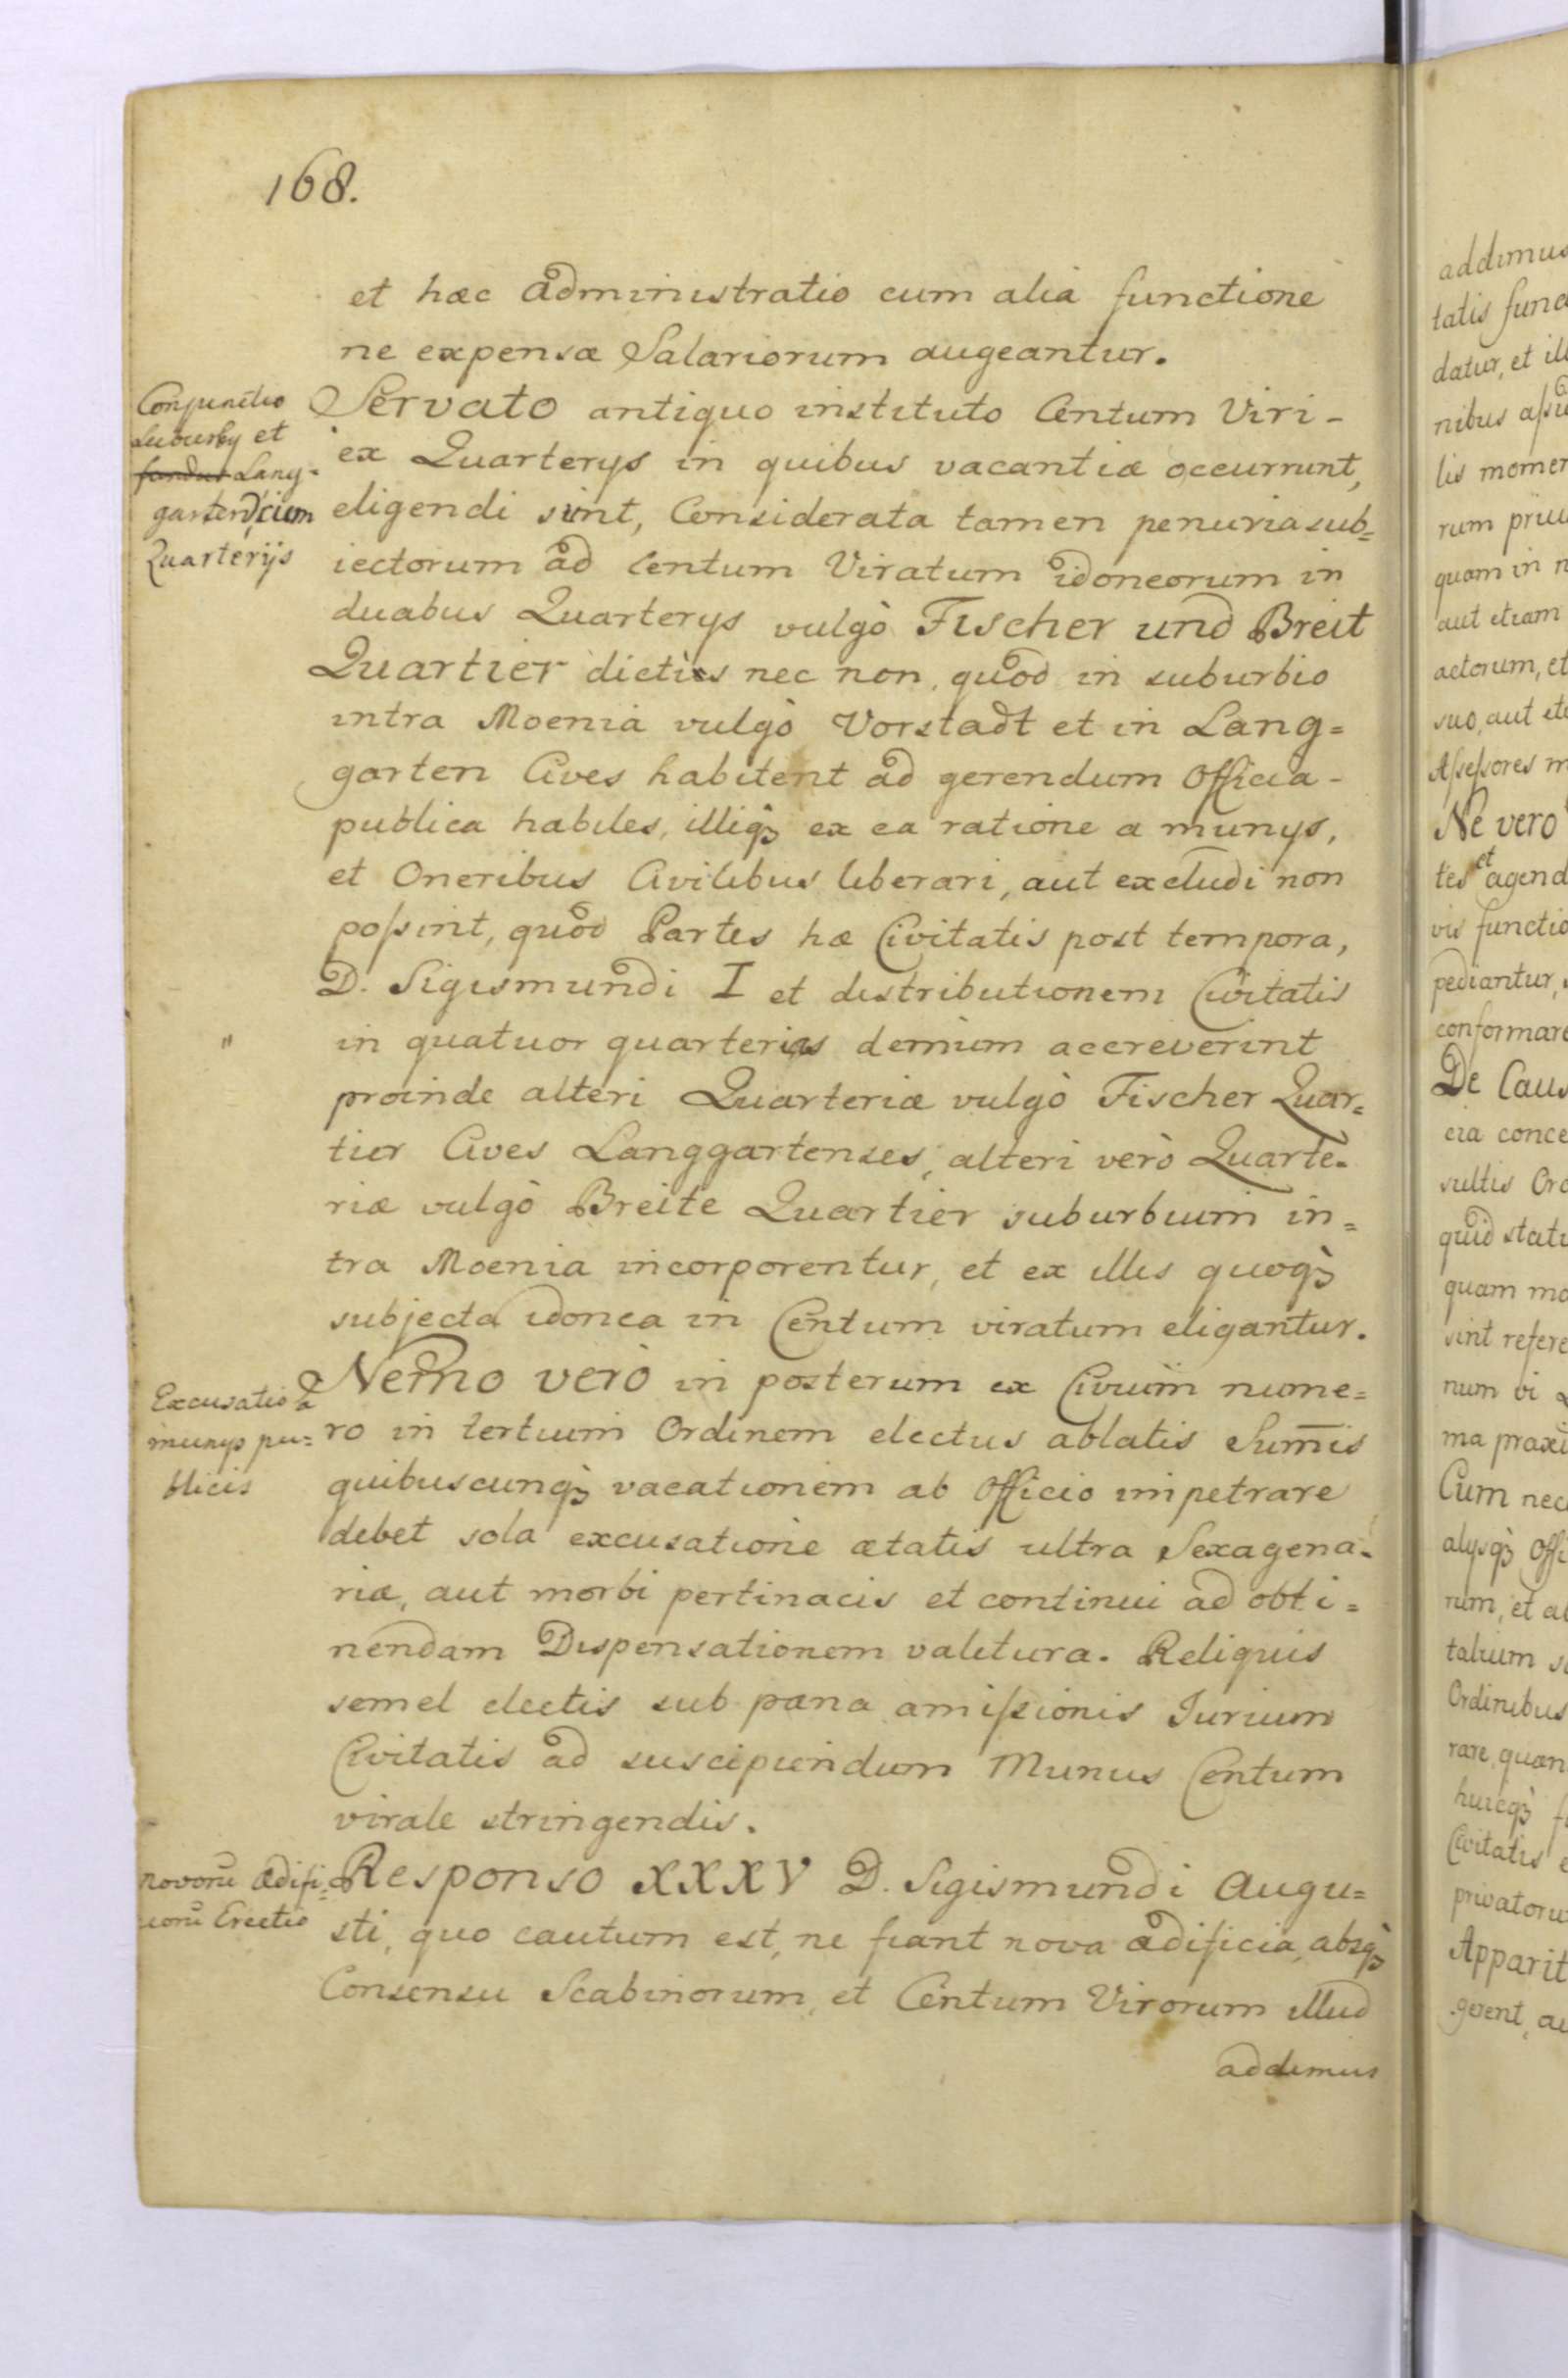 168.
et hæc administratio cum alia functione
ne expensæ Salariorum augeantur.
Conjunctio
Suburbij et
Lang-
garten cum
Quarterijs
Servato antiquo instituto Centum Viri-
ex Quarterys in quibus vacantiæ occurrunt,
eligendi sint, Considerata tamen penuria sub=
iectorum ad Centum Viratum idoneorum in
duabus Quarterys vulgò Fischer und Breit
Quartier dictis nec non, quod in suburbio
intra Moenia vulgò Vorstadt et in Lang=
garten Cives habitent ad gerendum Officia-
publica habiles, illiq₃ ex ea ratione a munys,
et Oneribus Civilibus liberari, aut excludi non
poſsint, quod Partes hæ Civitatis post tempora,
D. Sigismundi I et distributionem Civitatis
in quatuor quarterias demum accreverint
proinde alteri Quarteriæ vulgò Fischer Quar=
tier Cives Langgartenses, alteri verò Quarte=
riæ vulgò Breite Quartier suburbium in=
tra Moenia incorporentur, et ex illis quoq₃
subjecta idonea in Centum viratum eligantur.
Excusatio a
munys pu=
blicis
Nemo verò in posterum ex Civium nume=
ro in tertium Ordinem electus ablatis Sum̄is
quibuscunq₃ vacationem ab Officio impetrare
debet sola excusatione ætatis ultra Sexagena=
riæ, aut morbi pertinacis et continui ad obti=
nendam Dispensationem valitura. Reliquis
semel electis sub pæna amiſsionis Iurium
Civitatis ad suscipiendum Munus Centum
virale stringendis.
novorū ædifi=
ciorū Erectio
Responso XXXV D. Sigismundi Augu=
sti, quo cautum est, ne fiant nova ædificia, absq₃
Consensu Scabinorum, et Centum Virorum illud
addimus
addimus
tatis func
datur, et ill
nibus
lis momen
rum
quam in n
aut etiam
actorum, et
suo, aut
Aſseſsores m
Ne vero
tes et agend
vis functio
pediantur,
conformare
De Caus
cia conce
sultis Ord
quid statu
quam mo
sint refere
num vi
ma praxi
Cum nec
alysq₃ Offi
rum, et al
talium
Ordinibus
rare, quan
huicq₃
Civitatis
privatoru
Apparit
gerent, au